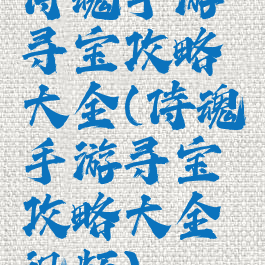 侍魂手游
寻宝攻略
大全(侍魂
手游寻宝
攻略大全
视频)